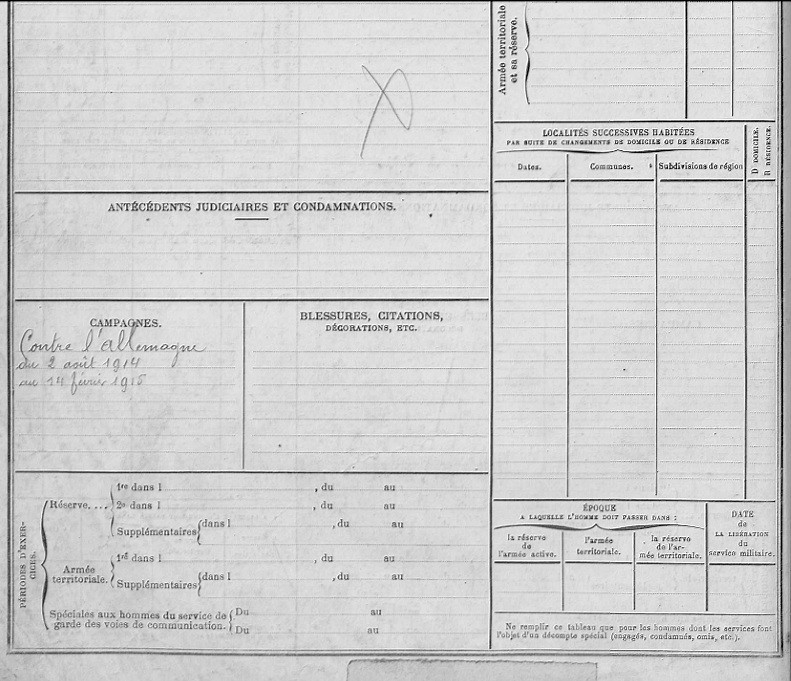 Armée territoriale
et sa réserve.
LOCALITÉS SUCCESSIVES HABITÉES
PAR SUITE DE CHANGEMENTS DE DOMICILE OU DE RÉSIDENCE
Dates.
Communes.
Subdivisions de région
D DOMICILE.
R RÉSIDENCE.
ANTÉCÉDENTS JUDICIAIRES ET CONDAMNATIONS.
CAMPAGNES.
Contre l'allemagne
du 2 août 1914
au 14 février 1915
BLESSURES, CITATIONS,
DÉCORATIONS, ETC.
PÉRIODES D'EXER-
CICES.
Réserve. ...
1re dans l , du au
2e dans l , du au
Supplémentaires dans l , du au
Armée
territoriale.
1re dans l , du au
Supplémentaires dans l , du au
Spéciales aux hommes du service de
garde des voies de communication.
Du au
Du au
ÉPOQUE
A LAQUELLE L'HOMME DOIT PASSER DANS :
la réserve
de
l'armée active.
l'armée
territoriale.
la réserve
de l'ar-
mée territoriale.
DATE
de
LA LIBÉRATION
du
service militaire.
Ne remplir ce tableau que pour les hommes dont les services font
l'objet d'un décompte spécial (engagés, condamnés, omis, etc.).